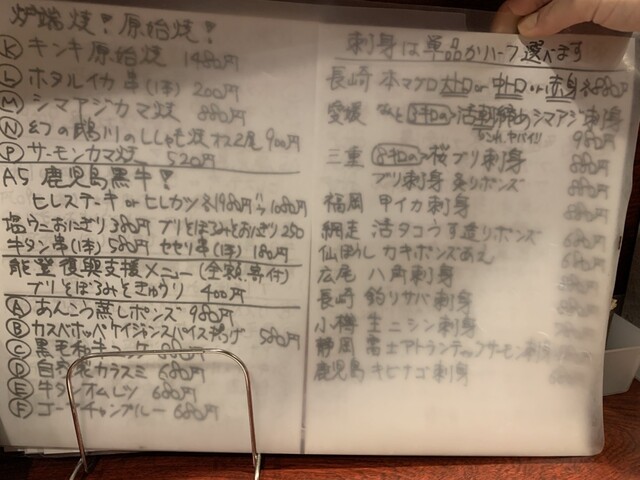 炉端焼!原始焼!
Ⓚ キンキ原始焼 1480円
Ⓛ ホタルイカ串(1本) 200円
Ⓜ シマアジカマ焼 880円
Ⓝ 幻の鵡川のししゃも焼 オス2尾 900円
Ⓟ サーモンカマ焼 520円
A5 鹿児島黒牛!
ヒレステーキ or ヒレカツ 各1980 ハーフ1080円
塩ウニおにぎり 380円 ブリとぼるみとおにぎり 250
牛タン串(1本) 580円 セセリ串(1本) 180円
能登復興支援メニュー(全額寄付)
ブリとぼるみときゅうり 400円
Ⓐ あんこう蒸しポンズ 980円
Ⓑ カスベホッペケイジャンスパイス揚げ 580円
Ⓒ 黒毛和牛 880円
Ⓓ 自家製カラスミ 680円
Ⓔ 牛タンオムレツ 680円
Ⓕ ゴーヤチャンプルー 680円
刺身は単品かハーフ選べます
長崎 本マグロ 大トロ or 中トロ or 赤身 各880円
愛媛 活〆締めシマアジ刺身
これ、ヤバイ!! 980円
三重 桜ブリ刺身 880円
ブリ刺身 炙りポンズ 880円
福岡 甲イカ刺身 880円
網走 活タコうす造りポンズ 680円
仙ぽうし カキポンズあえ 680円
広尾 八角刺身 880円
長崎 釣りサバ刺身 880円
小樽 生ニシン刺身 780円
静岡 富士アトランティックサーモン刺身
鹿児島 キビナゴ刺身